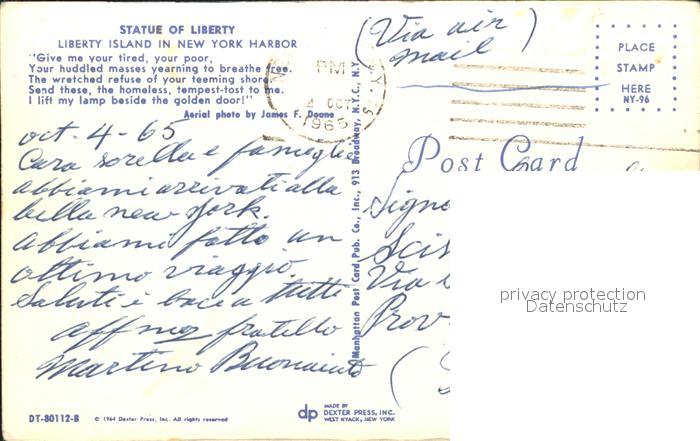 STATUE OF LIBERTY
LIBERTY ISLAND IN NEW YORK HARBOR
"Give me your tired, your poor,
Your huddled masses yearning to breathe free.
The wretched refuse of your teeming shore.
Send these, the homeless, tempest-tost to me.
I lift my lamp beside the golden door!"
Aerial photo by James F. Doane
oct-4-65
Cara sorella e famiglia
abbiami arrivati alla
bella new york.
abbiamo fatto un
ottimo viaggio.
Saluti e baci a tutti
aff mo fratello
Martino
DT-80112-B
© 1964 Dexter Press, Inc. All rights reserved
Manhattan Post Card Pub. Co., Inc., 913 Broadway, N.Y.C., N.Y.
dp
MADE BY
DEXTER PRESS, INC.
WEST NYACK, NEW YORK
(Via air
mail)
PM
4 OCT
1965
PLACE
STAMP
HERE
NY-96
Post Card
Signo
Scis
Via
Prov
privacy protection
Datenschutz